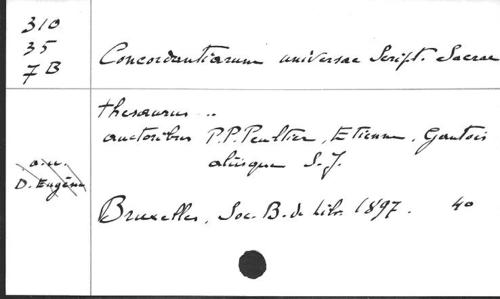 310
35
7 B
Concordantiarum universae Script. Sacrae
thesaurus ..
auctoribus P.P. Peultier, Etienne, Gantois
aliisque S.J.
a.u.
D. Eugène
Bruxelles, Soc. B. de libr. 1897. 4o